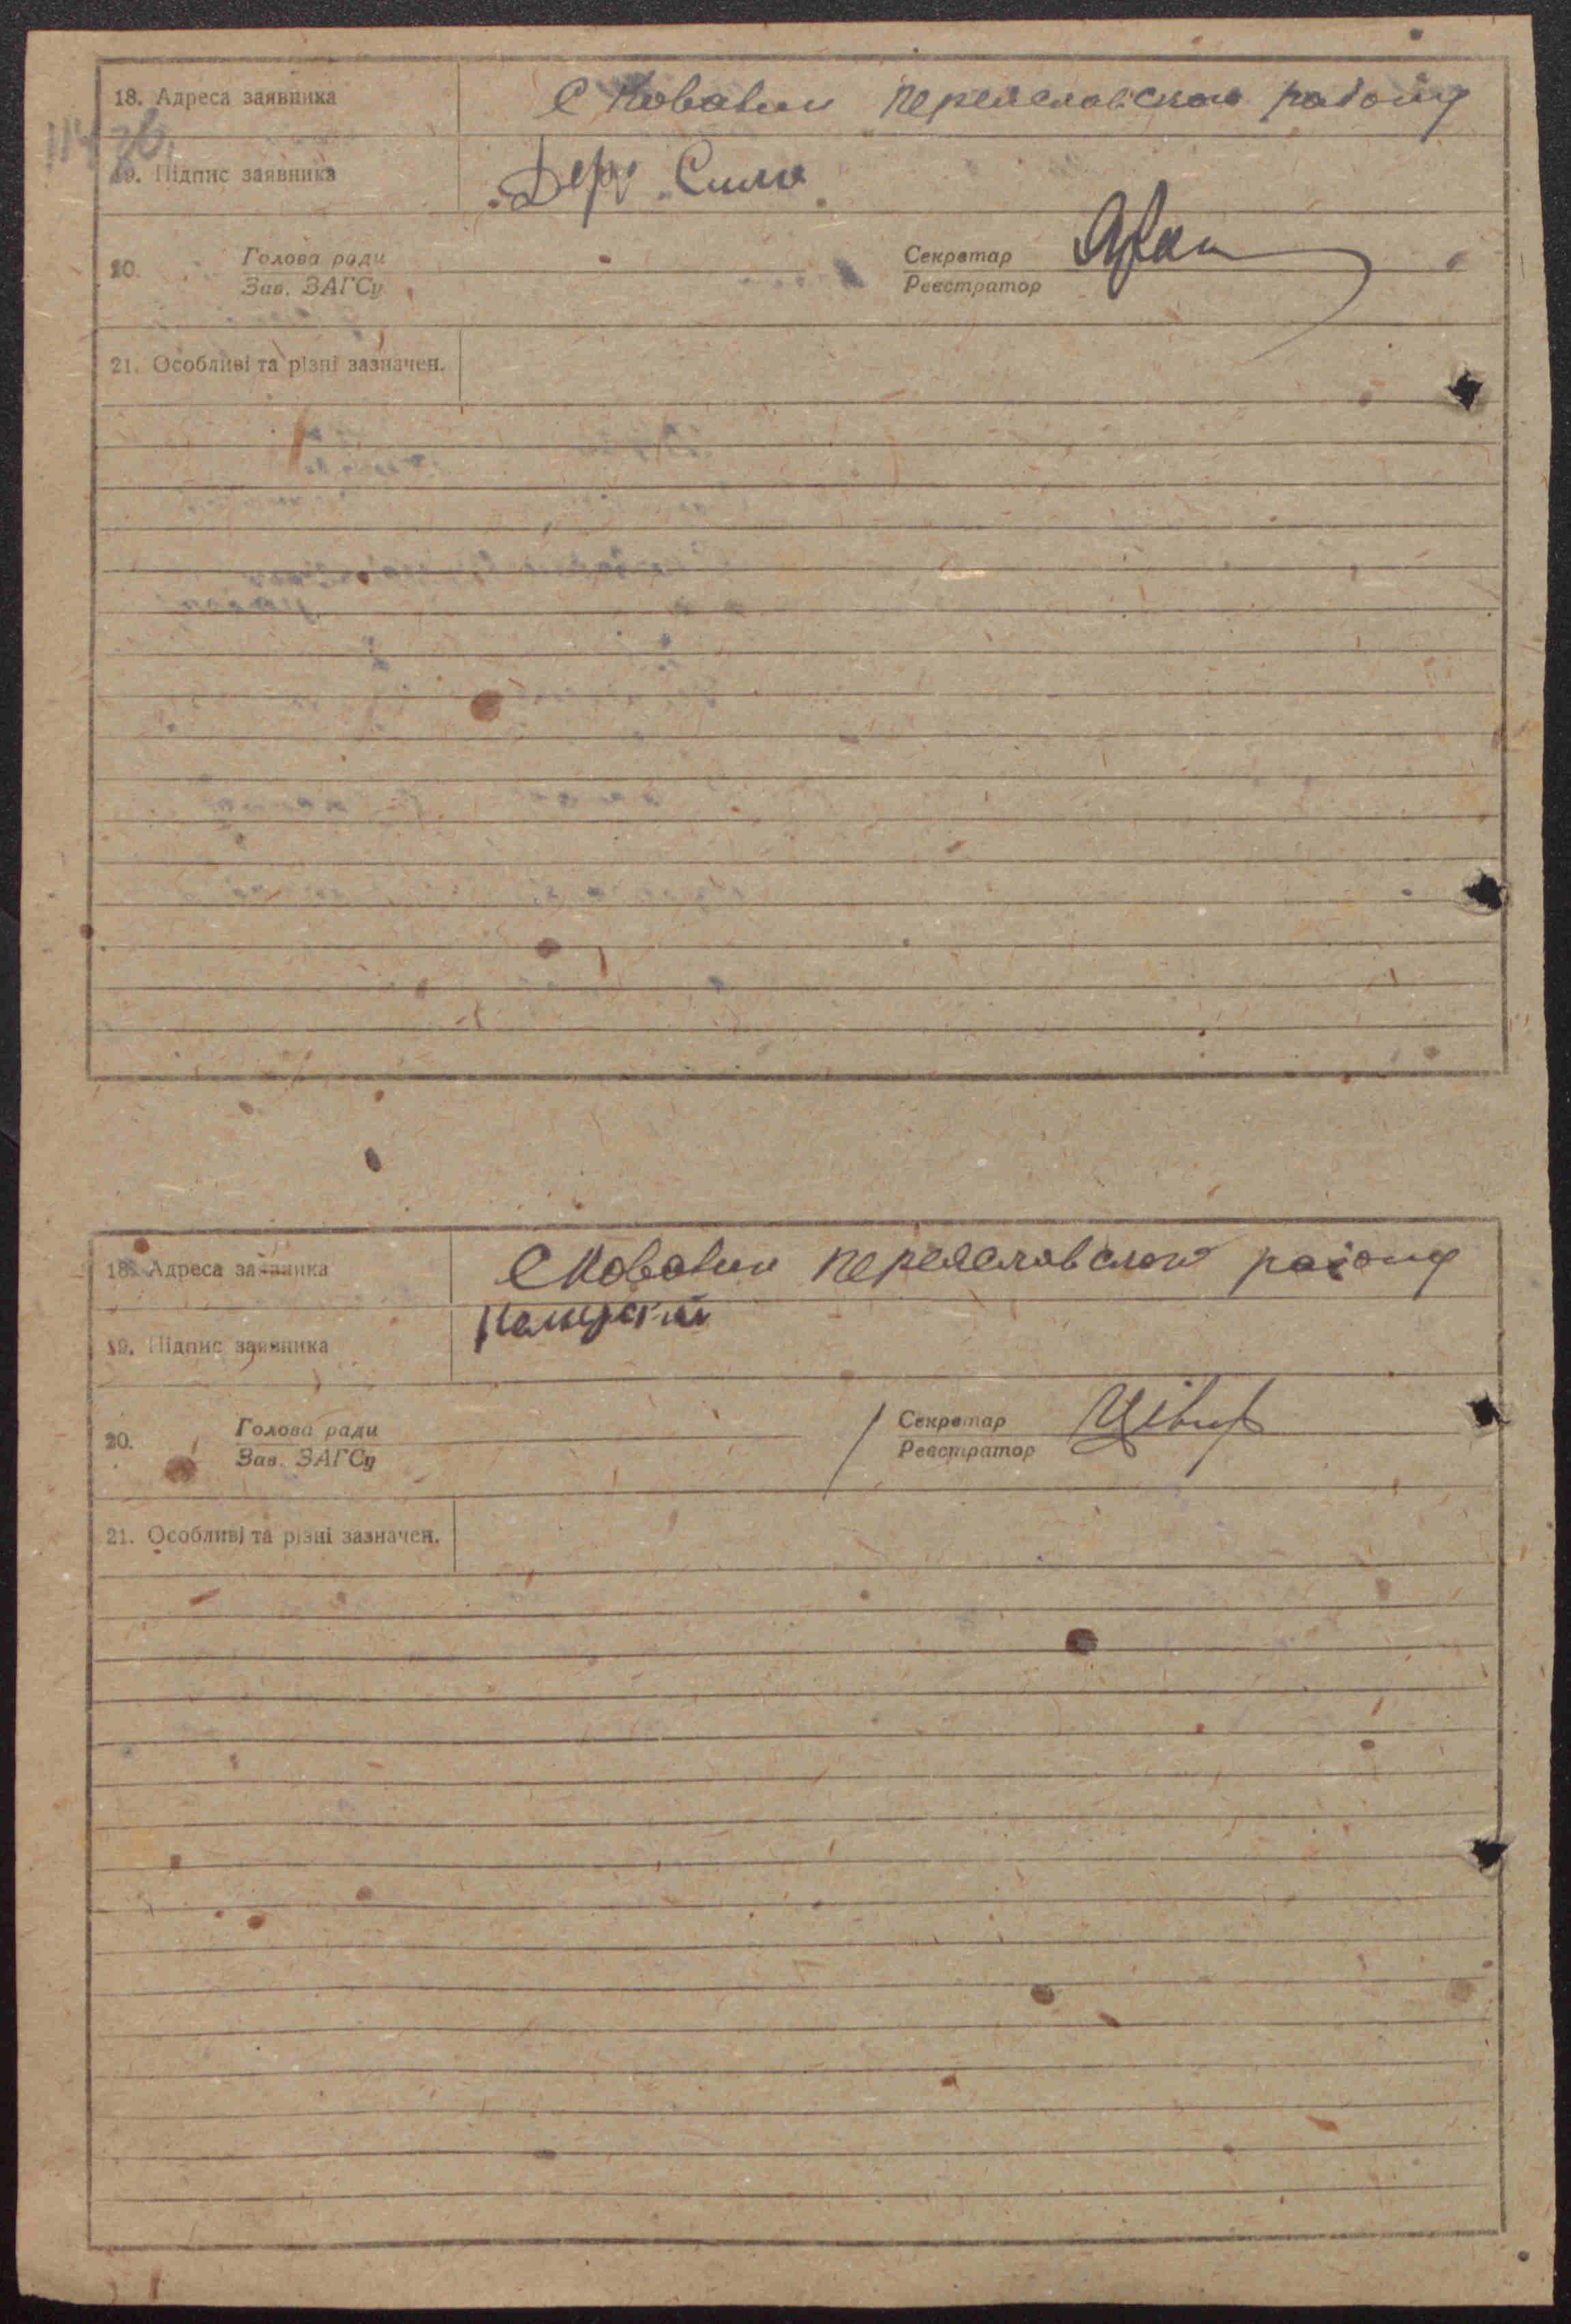 18. Адреса заявника С Ковалин переяславского району
114 зв.
19. Підпис заявника
20. Голова ради Секретар
Зав. ЗАГСу Реєстратор
21. Особливі та різні зазначен.
18. Адреса заявника С Ковалин переяславского району
19. Підпис заявника
20. Голова ради Секретар
Зав. ЗАГСу Реєстратор
21. Особливі та різні зазначен.